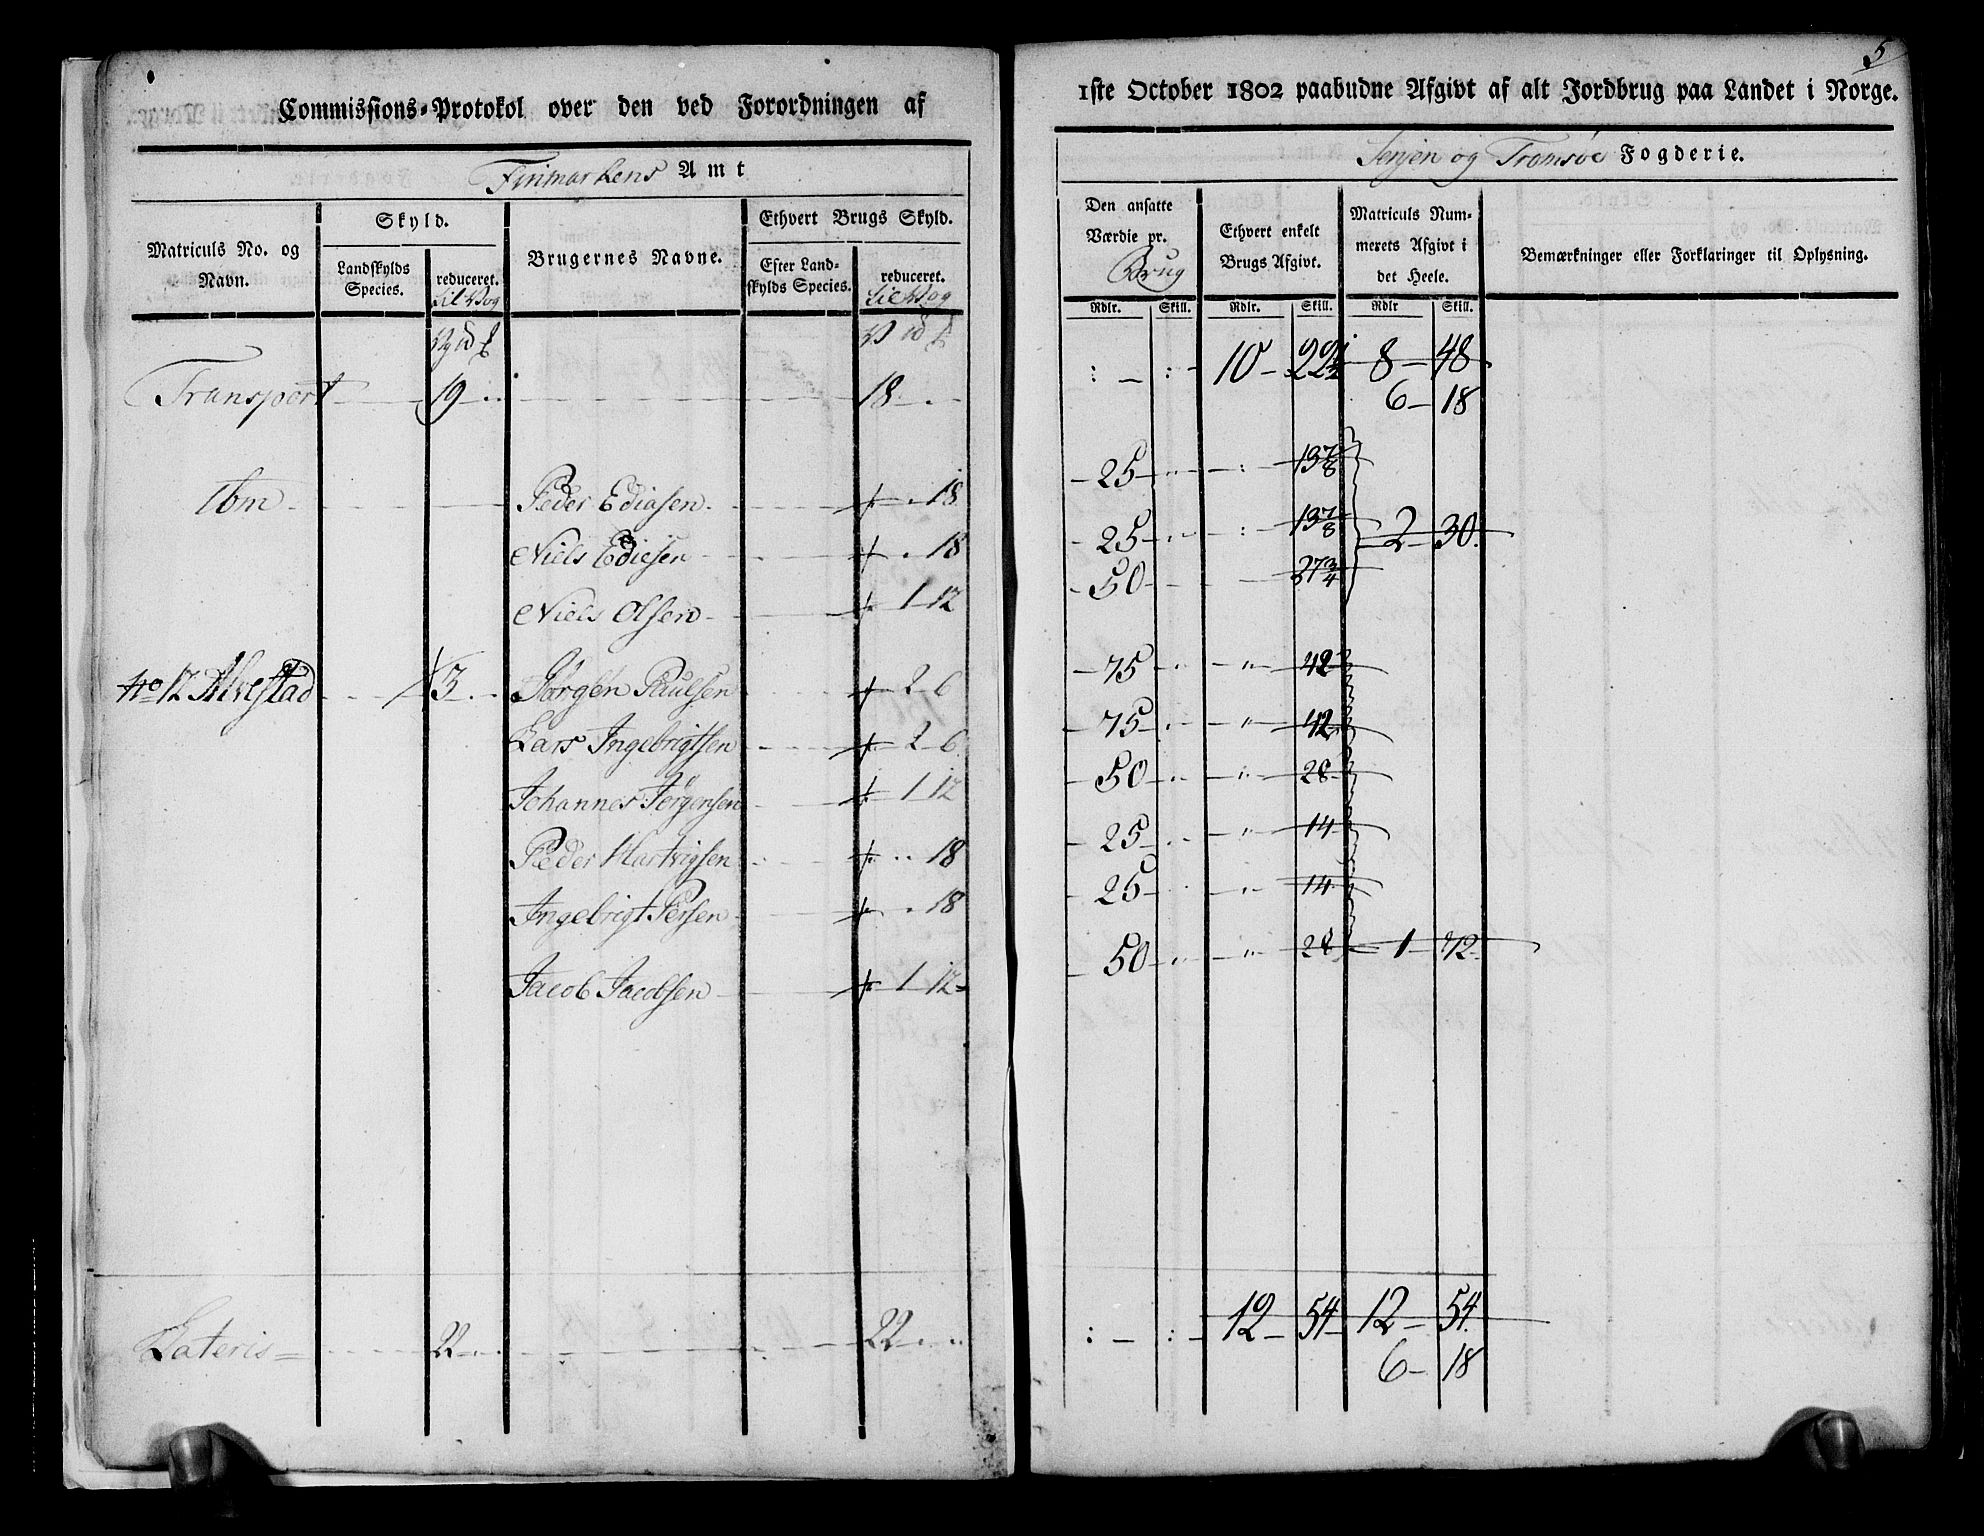 5
Commissions-Protokol over den ved Forordningen af
1ste October 1802 paabudne Afgivt af alt Jordbrug paa Landet i Norge.
Finmarkens Amt
Senjen og Tromsøe Fogderie.
Matriculs No. og Navn.
Skyld.
Landskylds Species.
reduceret.
Brugernes Navne.
Ethvert Brugs Skyld.
Efter Landskylds Species.
reduceret.
Den ansatte Værdie pr. Brug
Ethvert enkelt Brugs Afgivt.
Matriculs Nummerets Afgivt i det Heele.
Bemærkninger eller Forklaringer til Oplysning.
Rdlr. Skill. Rdlr. Skill. Rdlr Skill.
Transport 19 18 : : 10 22½ 8 48
6 18
Ibm Peder Ediasen 18 25 13⅞
Niels Ediesen 18 25 13⅞ 2 30
Niels Olsen 1 12 50 27¾
No 12 Alvestad 3 Jørgen Paulsen 2 6 75 42
Lars Ingebrigtsen 2 6 75 42
Johannes Jørgensen 1 12 50 28
Peder Hartvigsen 18 25 14
Ingebrigt Persen 18 25 14
Jacob Jacobsen 1 12 50 28 1 72
Lateris 22 22 : : 12 54 12 54
6 18